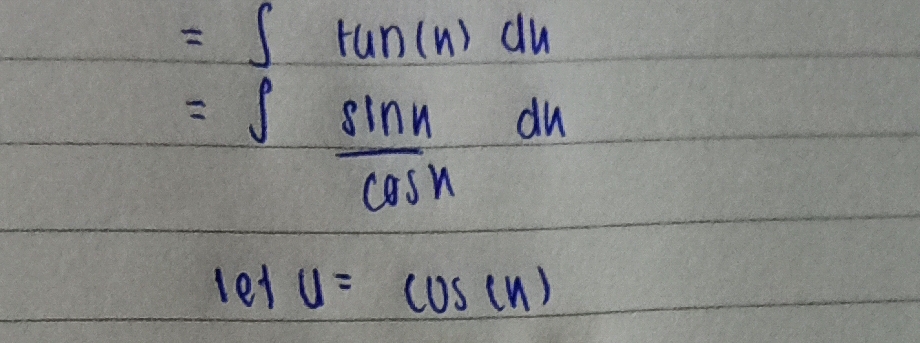 = ∫ tan(x) dx
= ∫ sinx dx
cosx
let u = cos(x)